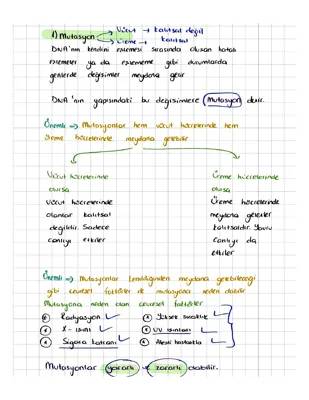 1) Mutasyon → Vücut → kalıtsal değil
→ Üreme → kalıtsal
DNA'nın kendini eşlemesi sırasında oluşan hatalı
eşlemeler ya da eşlememe gibi durumlarda
genlerde değişimler meydana gelir
DNA'nın yapısındaki bu değişimlere Mutasyon denir.
Önemli → Mutasyonlar hem vücut hücrelerinde hem
üreme hücrelerinde meydana gelebilir
Vücut hücrelerinde
olursa
Vücut hücrelerinde
olanlar kalıtsal
değildir. Sadece
canlıyı etkiler
Üreme hücrelerinde
olursa
Üreme hücrelerinde
meydana gelenler
kalıtsaldır. Yavru
Canlıyı da
etkiler
Önemli → Mutasyonlar kendiliğinden meydana gelebileceği
gibi çevresel faktörler de mutasyona neden olabilir
Mutasyona neden olan çevresel faktörler
Radyasyon
Yüksek sıcaklık
X-ışını
UV ışınları
Sigara katranı
Ateşli hastalık
Mutasyonlar yararlı ve zararlı olabilir.